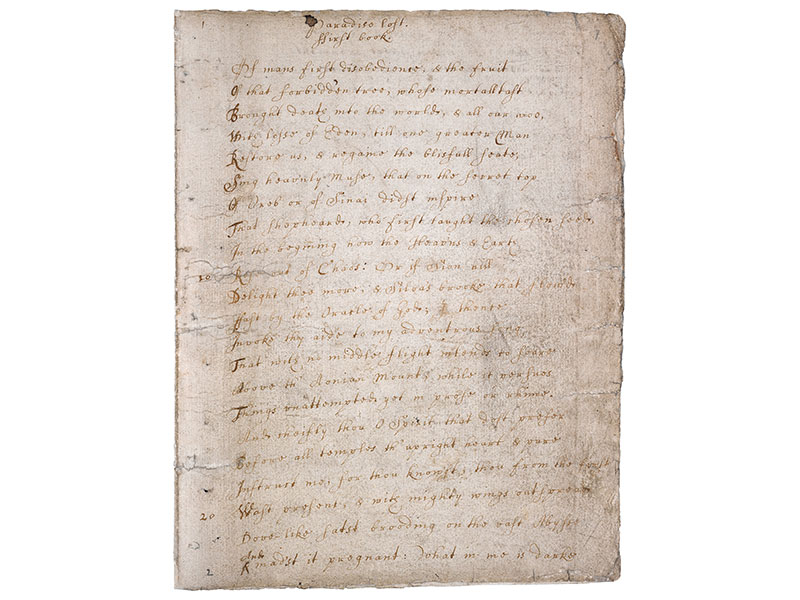 1
Paradise lost.
ffirst book.
Of mans first disobedience, & the fruit
Of that forbidden tree, whose mortall tast
Brought death into the world, & all our woe,
With losse of Eden, till one greater Man
Restore us, & regaine the blisfull seate,
Sing heavnly Muse, that on the secret top
Of Oreb or of Sinai didst inspire
That shepheard, who first taught the chosen seed,
In the beginning how the Heavns & Earth
10 Rose out of Chaos: Or if Sion hill
Delight thee more, & Siloas brooke that flow'd
ffast by the Oracle of God; I thence
Invoke thy aide to my adventrous song,
That with no middle flight intends to soare
Above th' Aonian Mount, while it persues
Things unattempted yet in prose or rhime.
And cheifly thou O Spirit that dost prefer
Before all temples th' upright heart & pure
Instruct me, for thou knowst; thou from the first
20 Wast present, & with mighty wings outspread
Dove-like satst brooding on the vast Abyss
And
mad'st it pregnant: What in me is darke
2